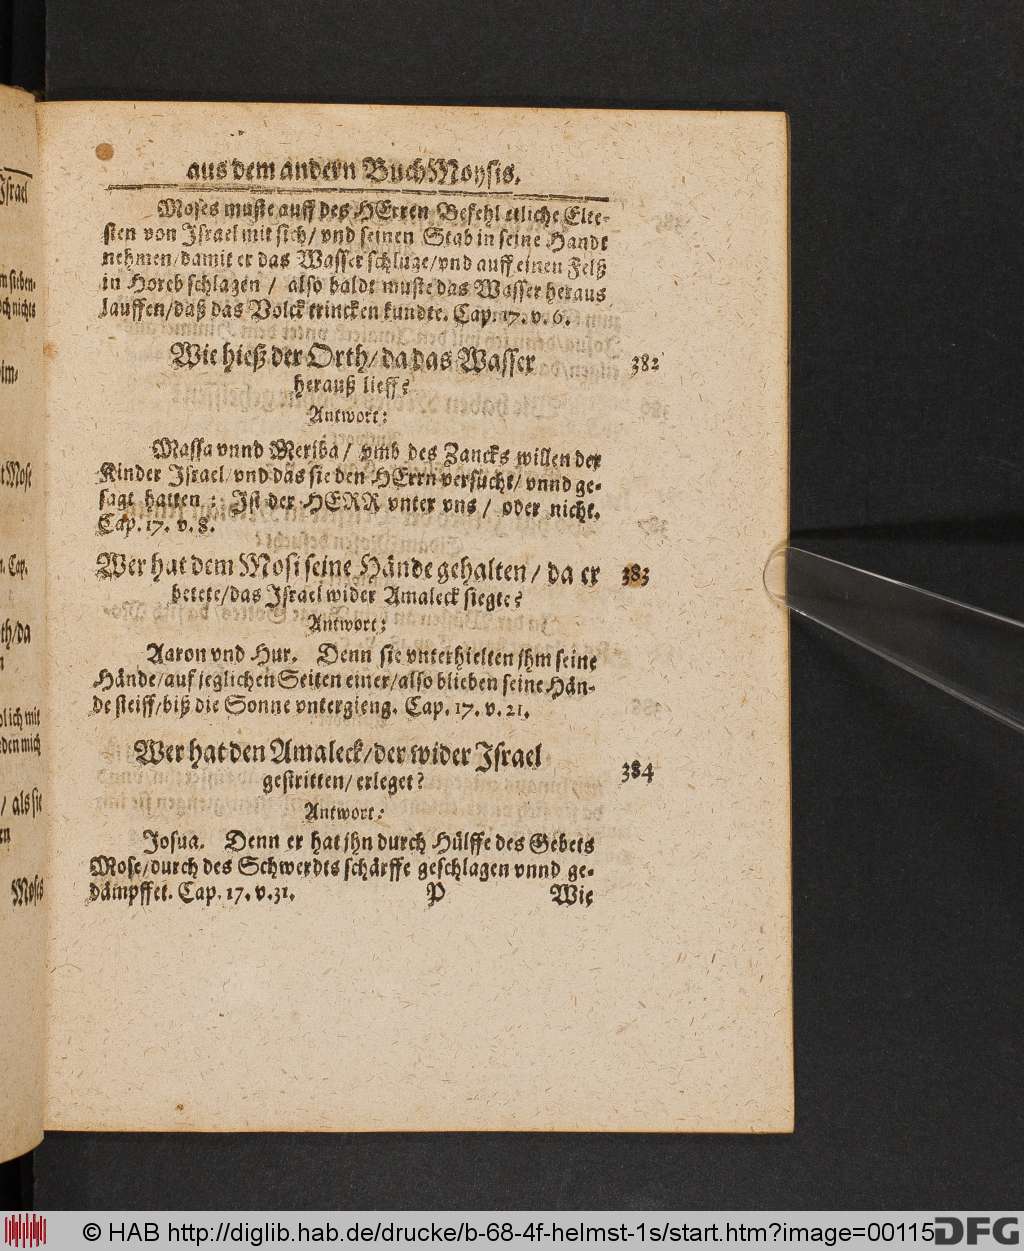 aus dem andern Buch Moysis.
Moses muste auff des HErren Befehl etliche Elte-
sten von Israel mit sich/ vnd seinen Stab in seine Handt
nehmen/ damit er das Wasser schluge/ vnd auff einen Felß
in Horeb schlagen / also baldt muste das Wasser heraus
lauffen/ daß das Volck trincken kundte. Cap. 17. v. 6.
Wie hieß der Orth/ da das Wasser
382
herauß lieff?
Antwort:
Massa vnnd Meriba / vmb des Zancks willen der
Kinder Israel/ vnd das sie den HErrn versucht/ vnnd ge-
sagt hatten : Ist der HERR vnter vns / oder nicht.
Cap. 17. v. 8.
Wer hat dem Mosi seine Hände gehalten / da er
383
betete/ das Israel wider Amaleck siegte?
Antwort:
Aaron vnd Hur. Denn sie vnterhielten ihm seine
Hände/ auf jeglichen Seiten einer/ also blieben seine Hän-
de steiff/ biß die Sonne vntergieng. Cap. 17. v. 21.
Wer hat den Amaleck/ der wider Israel
384
gestritten/ erleget?
Antwort:
Josua. Denn er hat ihn durch Hülffe des Gebets
Mose/ durch des Schwerdts schärffe geschlagen vnnd ge-
dämpffet. Cap. 17. v. 31.
P
Wie
Israel
t Mose
. Cap.
th/ da
lich mit
den mich
/ als sie
Moses
© HAB http://diglib.hab.de/drucke/b-68-4f-helmst-1s/start.htm?image=00115
DFG